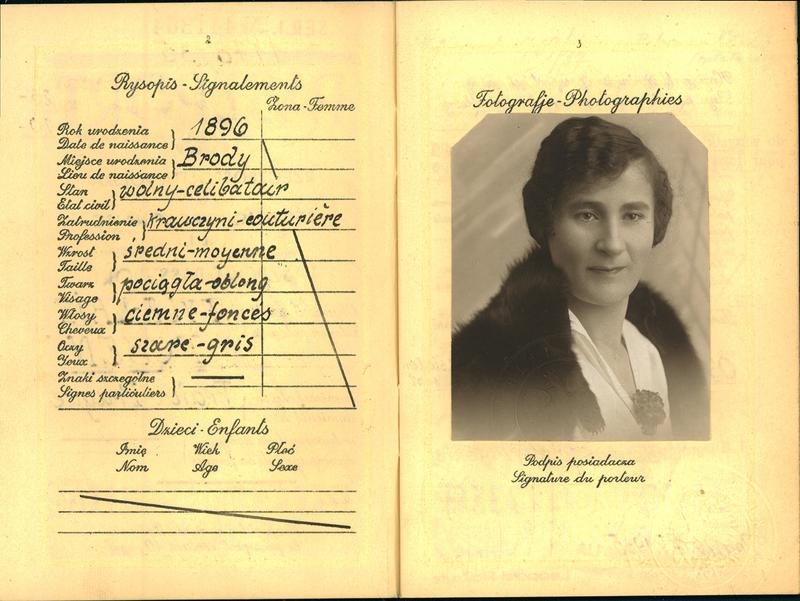 2
Rysopis - Signalements
Żona - Femme
Rok urodzenia
Date de naissance
1896
Miejsce urodzenia
Lieu de naissance
Brody
Stan
Etat civil
wolny-celibatair
Zatrudnienie
Profession
krawczyni-couturière
Wzrost
Taille
średni-moyenne
Twarz
Visage
pociągła-oblong
Włosy
Cheveux
ciemne-foncés
Oczy
Yeux
szare-gris
Znaki szczególne
Signes particuliers
Dzieci - Enfants
Imię Wiek Płeć
Nom Age Sexe
3
Fotografje - Photographies
Podpis posiadacza
Signature du porteur